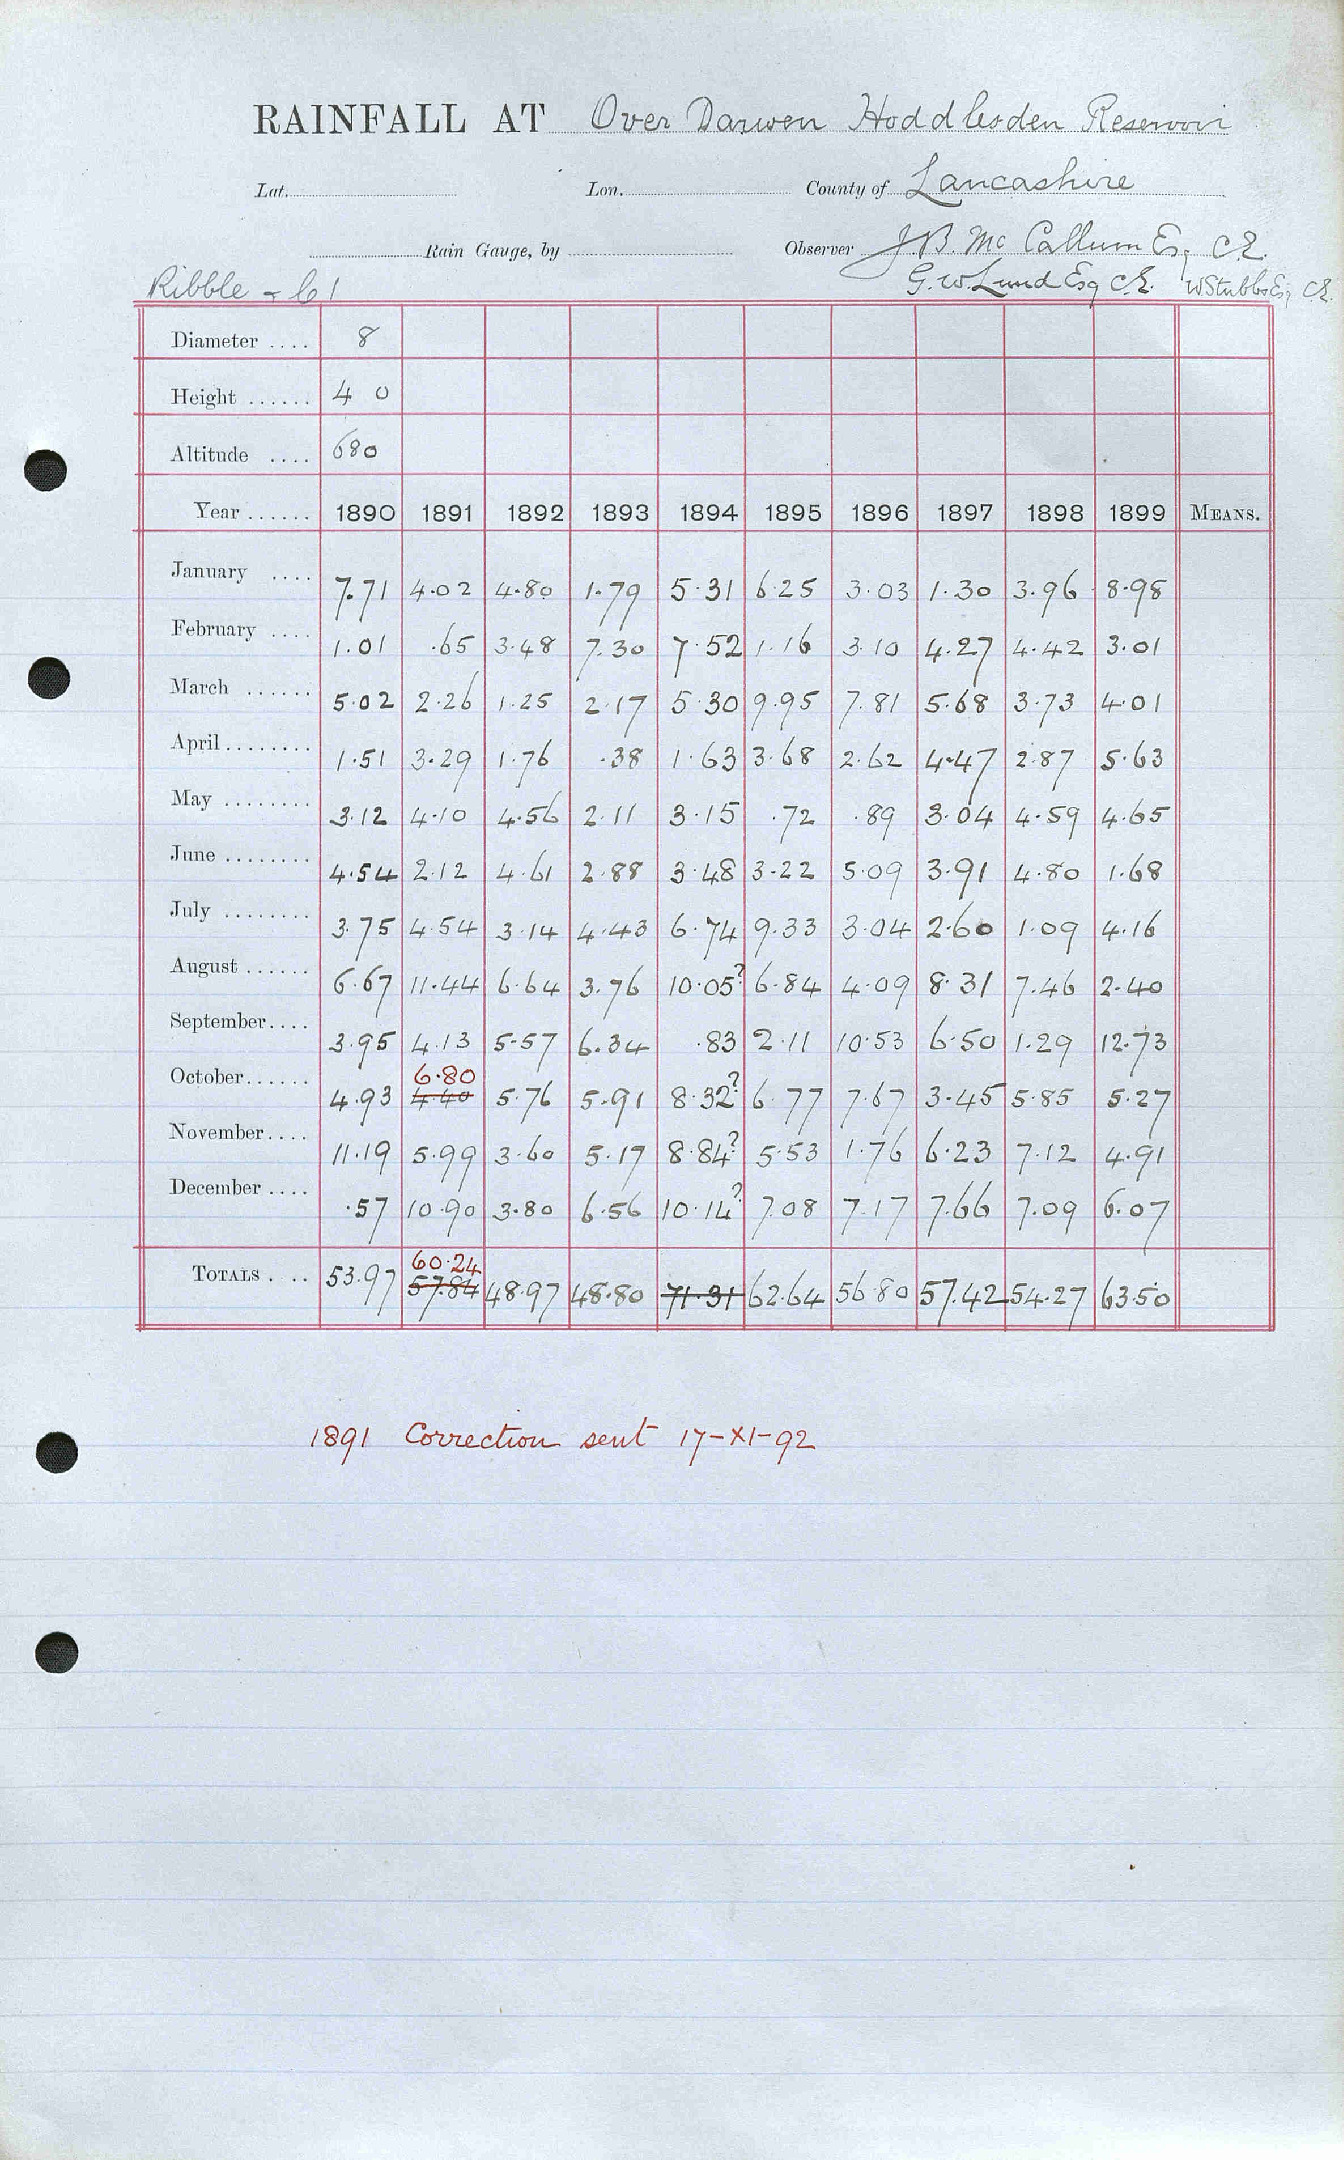 RAINFALL AT Over Darwen Hoddlesden Reservoir
Lat. Lon. County of Lancashire
Rain Gauge, by Observer J B. Mc Callum Esq C.E.
Ribble - G. W. Lund Esq C.E. W Stubbs Esq C.E.
Diameter .... 8
Height ...... 4 0
Altitude .... 680
Year ...... 1890 1891 1892 1893 1894 1895 1896 1897 1898 1899 MEANS.
January .... 7.71 4.02 4.80 1.79 5.31 6.25 3.03 1.30 3.96 8.98
February .... 1.01 .65 3.48 7.30 7.52 1.16 3.10 4.27 4.42 3.01
March ...... 5.02 2.26 1.25 2.17 5.30 9.95 7.81 5.68 3.73 4.01
April ........ 1.51 3.29 1.76 .38 1.63 3.68 2.62 4.47 2.87 5.63
May ........ 3.12 4.10 4.56 2.11 3.15 .72 .89 3.04 4.59 4.65
June ........ 4.54 2.12 4.61 2.88 3.48 3.22 5.09 3.91 4.80 1.68
July ........ 3.75 4.54 3.14 4.43 6.74 9.33 3.04 2.60 1.09 4.16
August ...... 6.67 11.44 6.64 3.76 10.05? 6.84 4.09 8.31 7.46 2.40
September.... 3.95 4.13 5.57 6.34 .83 2.11 10.53 6.50 1.29 12.73
6.80
October...... 4.93 4.40 5.76 5.91 8.32? 6.77 7.67 3.45 5.85 5.27
November.... 11.19 5.99 3.60 5.17 8.84? 5.53 1.76 6.23 7.12 4.91
December .... .57 10.90 3.80 6.56 10.14? 7.08 7.17 7.66 7.09 6.07
60.24
TOTALS . .. 53.97 57.84 48.97 48.80 71.31 62.64 56.80 57.42 54.27 63.50
1891 Correction sent 17-XI-92